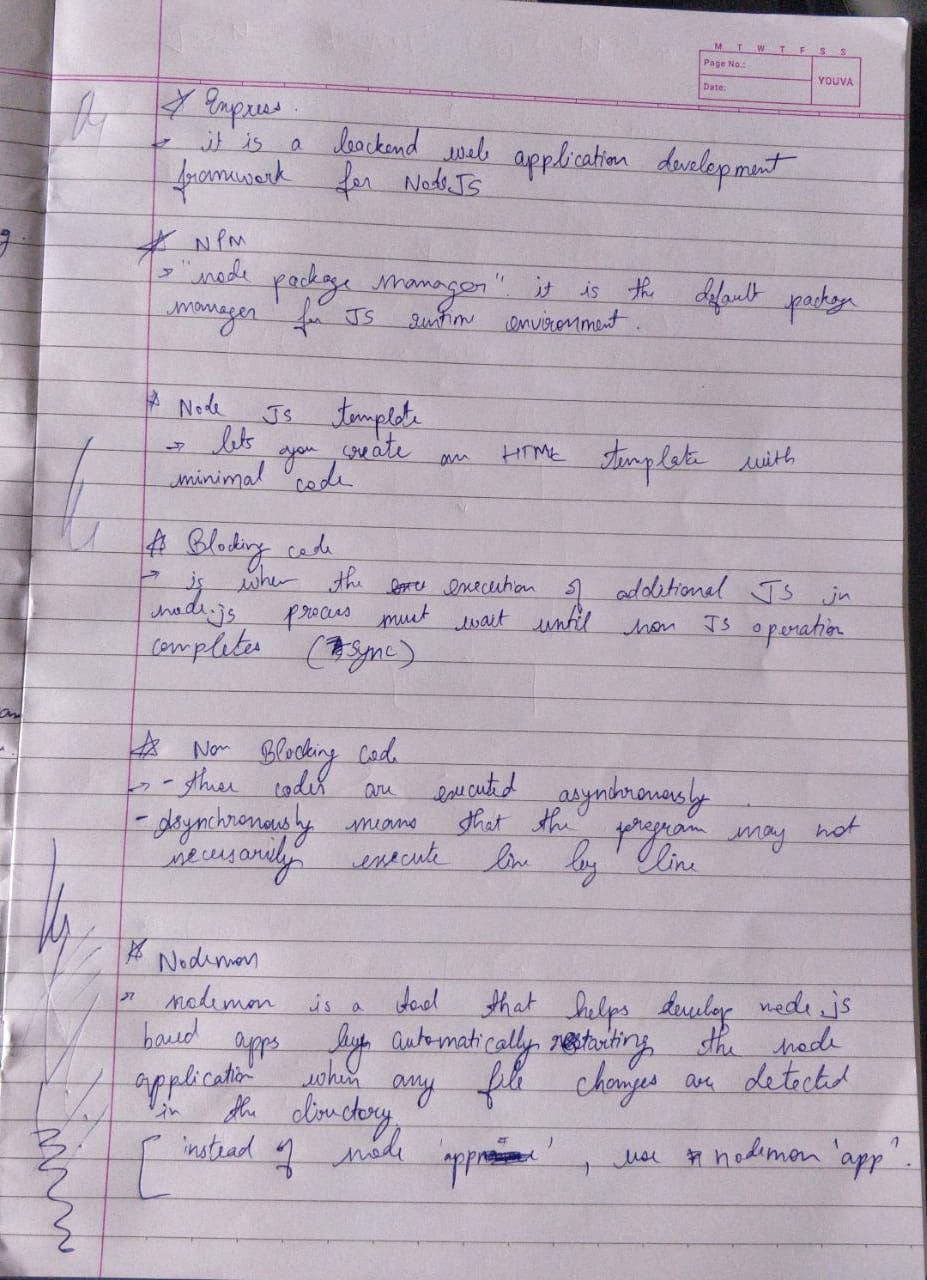 M T W T F S S
Page No.:
Date:
YOUVA
* Express.
→ it is a backend web application development
framework for NodeJS
* NPM
→ "node package manager". it is the default package
manager for JS runtime environment.
* Node JS template
→ lets you create an HTML template with
minimal code
* Blocking code
→ is when the execution of additional JS in
node.js process must wait until non JS operation
completes (sync)
* Non Blocking code
→ - these codes are executed asynchronously.
- Asynchronously means that the program may not
necessarily execute line by line
* Nodemon
→ nodemon is a tool that helps develop node.js
based apps by automatically restarting the node
application when any file changes are detected
in the directory
[ instead of node 'app', use nodemon 'app'.